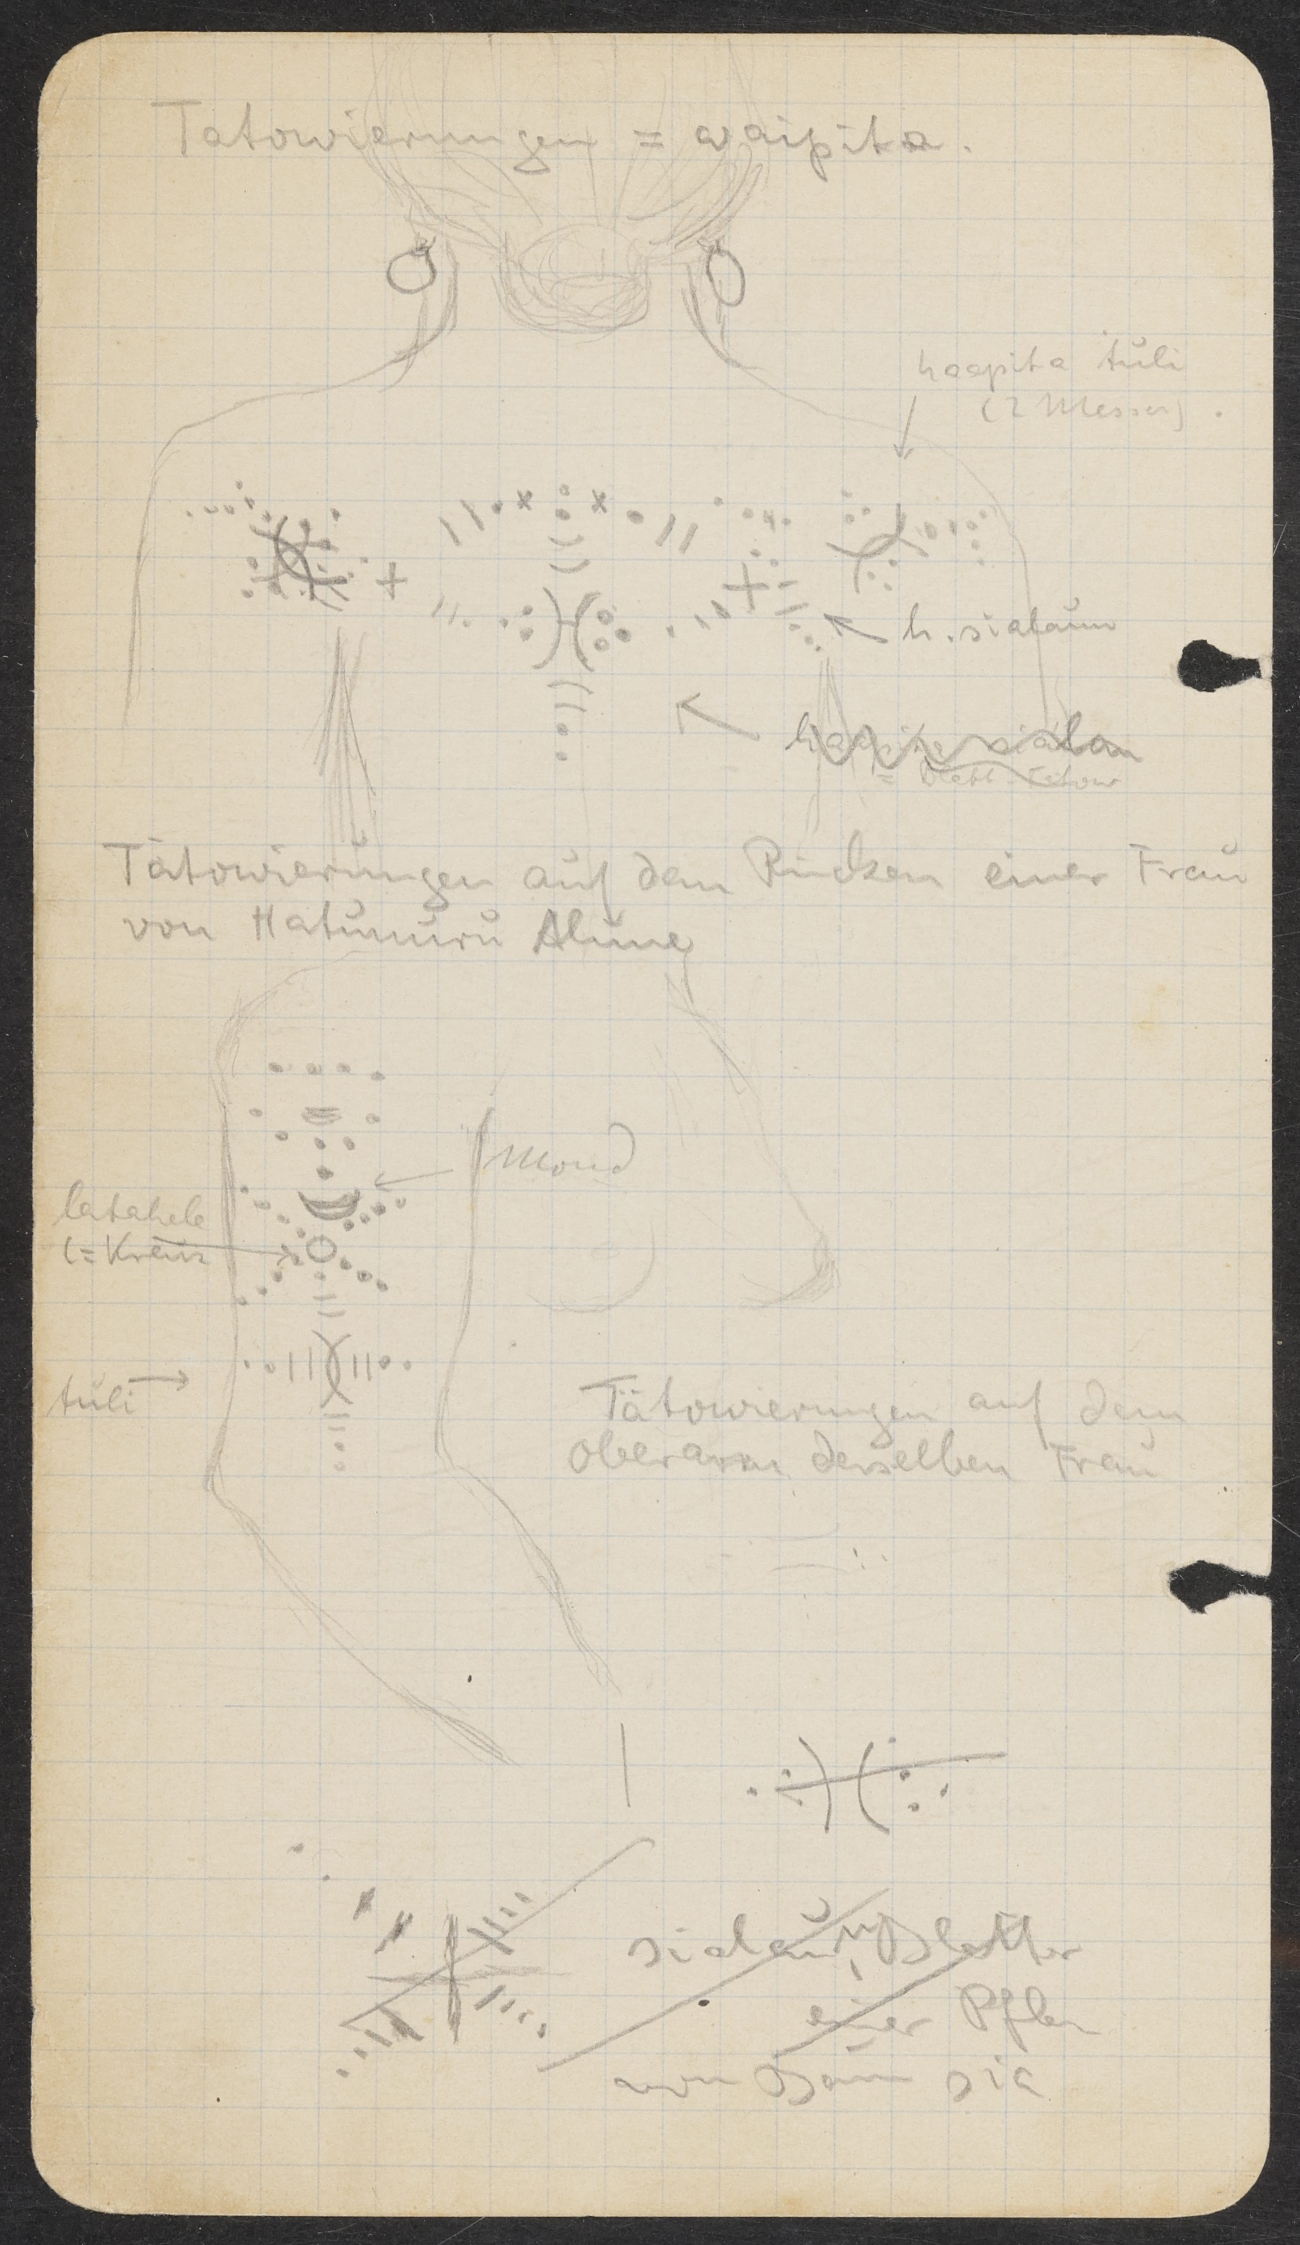 Tatowierungen = waipita.
haapita tuli
(2 Messer).
h. sialaun
Tätowierungen auf dem Rücken einer Frau
von Hatunuru Alune
Mond
latahele
(= Kreuz
tuli
Tätowierungen auf dem
Oberarm derselben Frau
sialaun Blätter
einer Pflan
von Baum sia